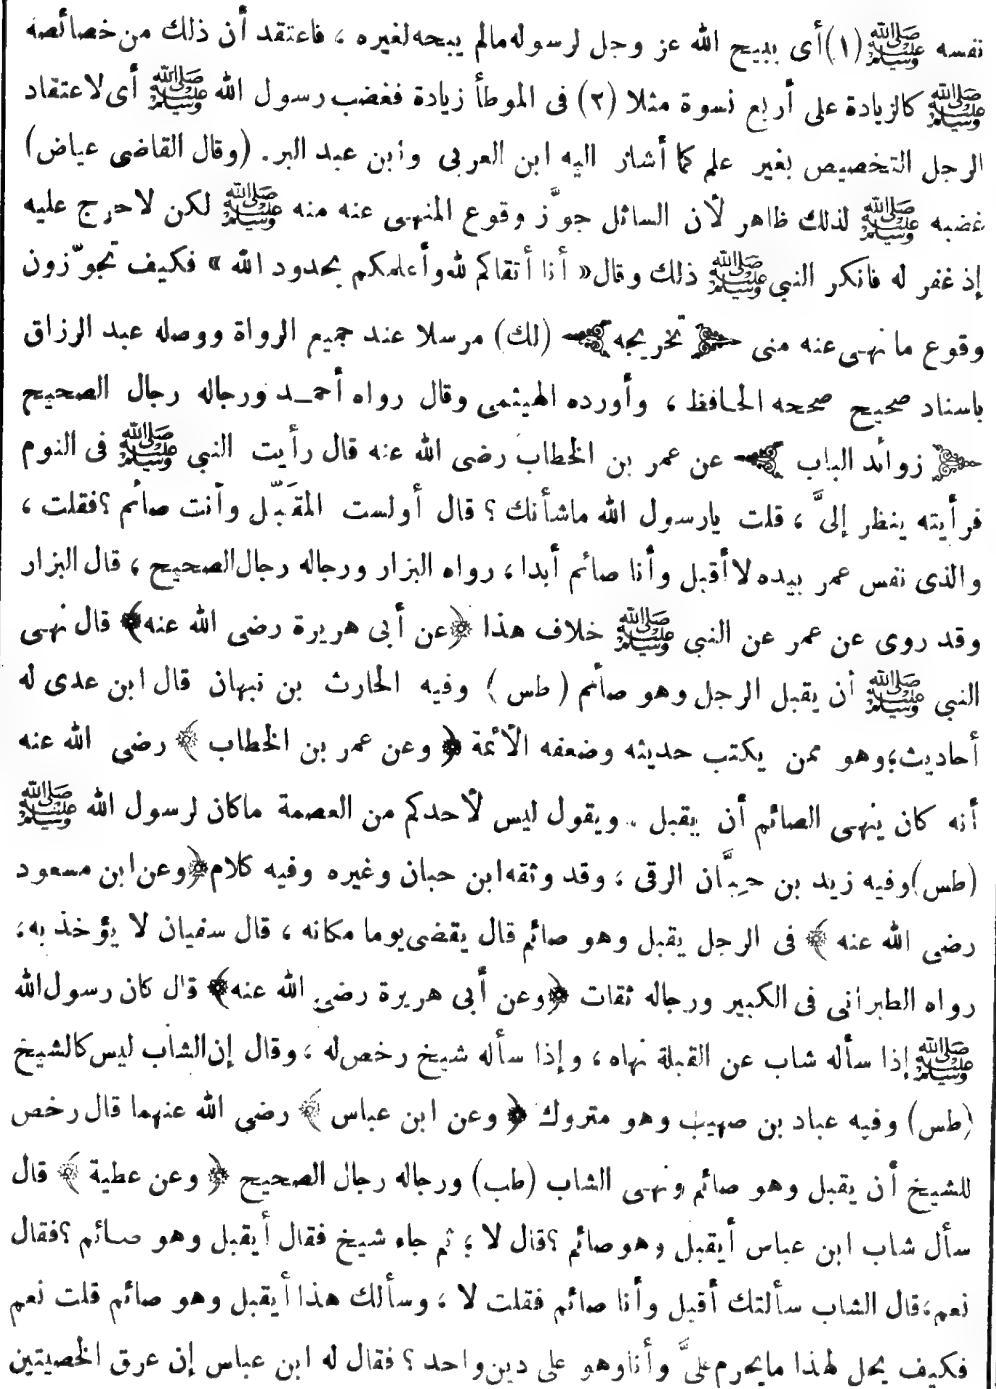 نفسه ﷺ (١) أى يبيح الله عز وجل لرسوله مالم يبحه لغيره ، فاعتقد أن ذلك من خصائصه
ﷺ كالزيادة على أربع نسوة مثلا (٢) فى الموطأ زيادة فغضب رسول الله ﷺ أى لاعتقاد
الرجل التخصيص بغير علم كما أشار اليه ابن العربى وابن عبد البر. (وقال القاضى عياض)
غضبه ﷺ لذلك ظاهر لأن السائل جوَّز وقوع المنهى عنه منه ﷺ لكن لا حرج عليه
إذ غفر له فانكر النبى ﷺ ذلك وقال « أنا أتقاكم لله وأعلمكم بحدود الله » فكيف تجوّزون
وقوع ما نهى عنه منى ﴿ تخريجه ﴾ (لك) مرسلا عند جميع الرواة ووصله عبد الرزاق
باسناد صحيح صححه الحافظ ، وأورده الهيثمى وقال رواه أحمد ورجاله رجال الصحيح
﴿ زوائد الباب ﴾ عن عمر بن الخطاب رضى الله عنه قال رأيت النبى ﷺ فى النوم
فرأيته ينظر إلىَّ ، قلت يارسول الله ماشأنك ؟ قال أولست المقبِّل وأنت صائم ؟ فقلت ،
والذى نفس عمر بيده لا أقبل وأنا صائم أبدا ، رواه البزار ورجاله رجال الصحيح ، قال البزار
وقد روى عن عمر عن النبى ﷺ خلاف هذا ﴿عن أبى هريرة رضى الله عنه﴾ قال نهى
النبى ﷺ أن يقبل الرجل وهو صائم (طس) وفيه الحارث بن نبهان قال ابن عدى له
أحاديث ؛ وهو ممن يكتب حديثه وضعفه الأئمة ﴿ وعن عمر بن الخطاب ﴾ رضى الله عنه
أنه كان ينهى الصائم أن يقبل . ويقول ليس لأحدكم من العصمة ماكان لرسول الله ﷺ
(طس) وفيه زيد بن حِبَّان الرقى ، وقد وثقه ابن حبان وغيره وفيه كلام ﴿وعن ابن مسعود
رضى الله عنه ﴾ فى الرجل يقبل وهو صائم قال يقضى يوما مكانه ، قال سفيان لا يؤخذ به ،
رواه الطبرانى فى الكبير ورجاله ثقات ﴿وعن أبى هريرة رضى الله عنه﴾ قال كان رسول الله
ﷺ إذا سأله شاب عن القبلة نهاه ، وإذا سأله شيخ رخص له ، وقال إن الشاب ليس كالشيخ
(طس) وفيه عباد بن صهيب وهو متروك ﴿ وعن ابن عباس ﴾ رضى الله عنهما قال رخص
للشيخ أن يقبل وهو صائم ونهى الشاب (طب) ورجاله رجال الصحيح ﴿ وعن عطية ﴾ قال
سأل شاب ابن عباس أيقبل وهو صائم ؟ قال لا ؛ ثم جاء شيخ فقال أيقبل وهو صائم ؟ فقال
نعم ، قال الشاب سألتك أقبل وأنا صائم فقلت لا ، وسألك هذا أيقبل وهو صائم قلت نعم
فكيف يحل لهذا مايحرم علىَّ وأنا وهو على دين واحد ؟ فقال له ابن عباس إن عرق الخصيتين